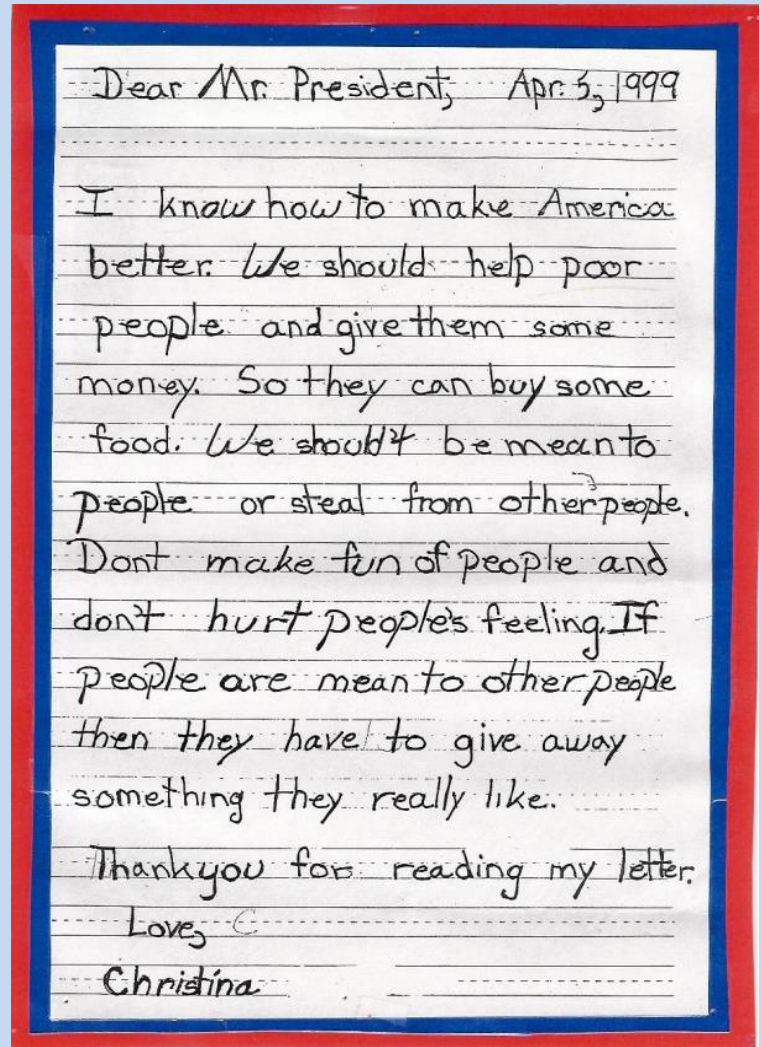 Dear Mr. President, Apr. 5, 1999
I know how to make America
better. We should help poor
people and give them some
money. So they can buy some
food. We should't be mean to
people or steal from other people.
Dont make fun of people and
don't hurt people's feeling. If
people are mean to other people
then they have to give away
something they really like.
Thankyou for reading my letter.
Love, C
Christina